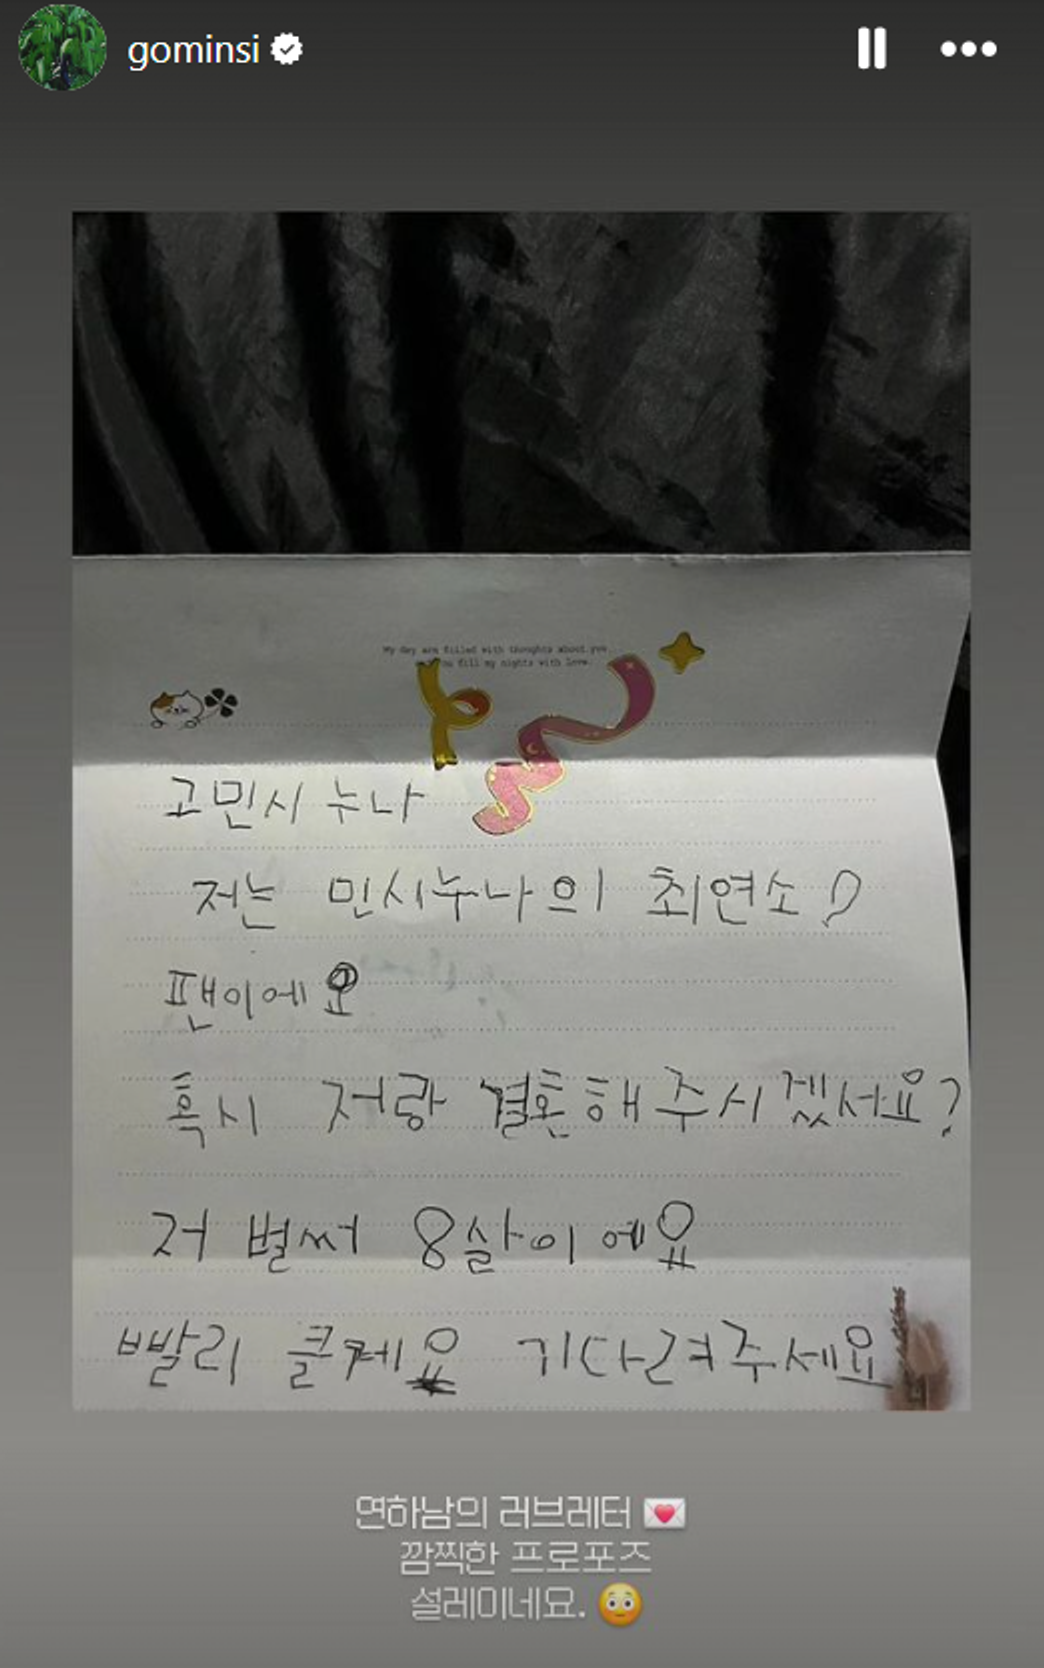 gominsi
My day are filled with thoughts about you
fill my nights with love.
고민시 누나
저는 민시누나의 최연소
팬이에요
혹시 저랑 결혼해주시겠서요?
저 벌써 8살이에요
빨리 클께요 기다려주세요
연하남의 러브레터 💌
깜찍한 프로포즈
설레이네요. 😳